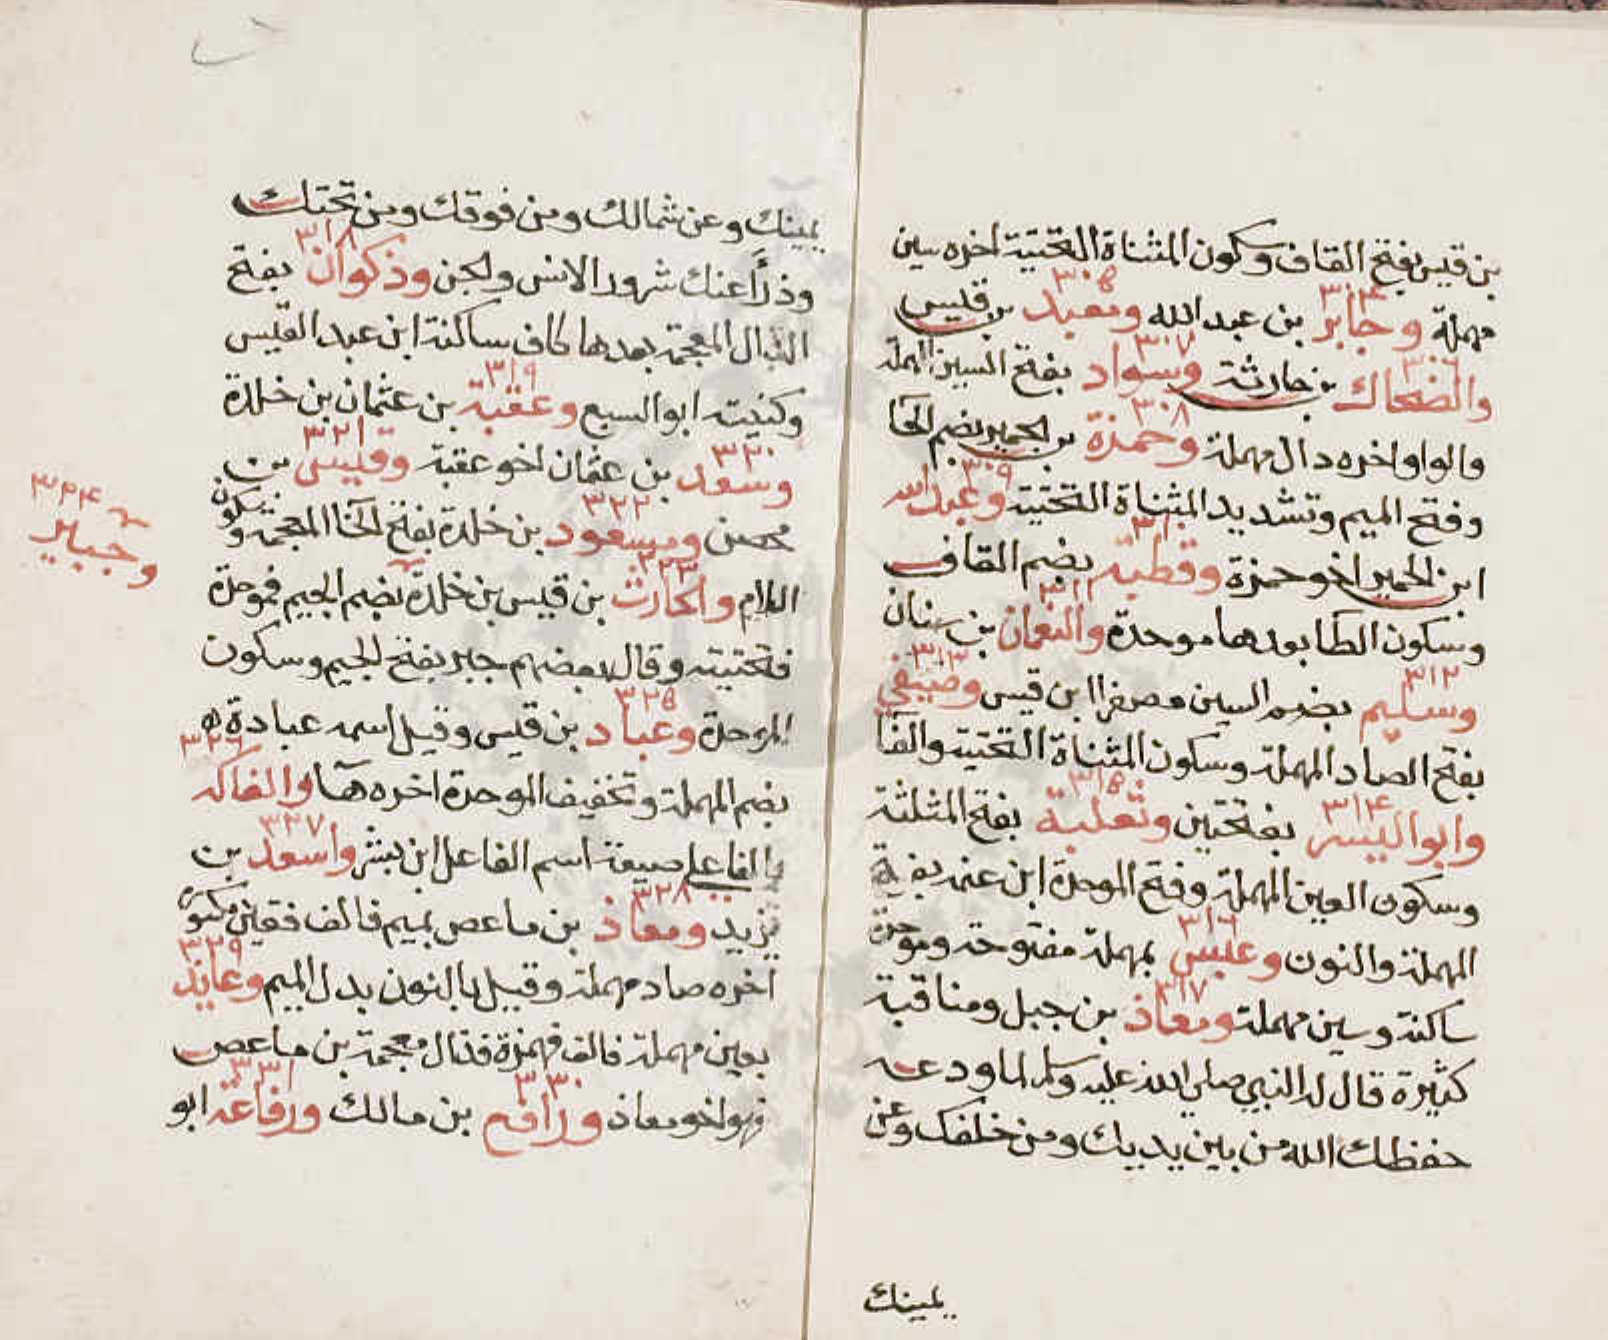 بن قيس بفتح القاف وسكون المثناة التحتية اخره سين
مهملة وجابر ٣٠٤ بن عبد الله ومعبد ٣٠٥ بن قيس
والضحاك ٣٠٦ بن حارثة وسواد ٣٠٧ بفتح السين المهملة
والواو اخره دال مهملة وحمزة ٣٠٨ بن الحمير بضم الحآ
وفتح الميم وتشديد المثناة التحتية وعبد الله ٣٠٩
ابن الحمير اخو حمزة وقطبة ٣١٠ بضم القاف
وسكون الطا بعدها موحدة والنعمان ٣١١ بن سنان
وسليم ٣١٢ بضم السين مصغرا ابن قيس وصيفي ٣١٣
بفتح الصاد المهملة وسكون المثناة التحتية والفآ
وابو اليسر ٣١٤ بفتحتين وثعلبة ٣١٥ بفتح المثلثة
وسكون العين المهملة وفتح الموحدة ابن عنمه بفتح
المهملة والنون وعبس ٣١٦ بمهملة مفتوحة وموحدة
ساكنة وسين مهملة ومعاذ ٣١٧ بن جبل ومناقبة
كثيرة قال له النبي صلى الله عليه وسلم لما ودعه
حفظك الله من بين يديك ومن خلفك وعن
يمينك
يمينك وعن شمالك ومن فوقك ومن تحتك
وذرأ عنك شرور الانس والجن وذكوان ٣١٨ بفتح
الذال المعجمة بعدها كاف ساكنة ابن عبد القيس
وكنيته ابو السبع وعقبة ٣١٩ بن عثمان بن خلدة
وسعد ٣٢٠ بن عثمان اخو عقبة وقيس ٣٢١ بن
محصن ومسعود ٣٢٢ بن خلدة بفتح الخآ المعجمة وسكون
اللام والحارث ٣٢٣ بن قيس بن خلدة بضم الجيم فموحدة
وجبير ٣٢٤
فتحتية وقال بعضهم جبر بفتح الجيم وسكون
الموحدة وعباد ٣٢٥ بن قيس وقيل اسمه عبادة
بضم المهملة وتخفيف الموحدة اخره هآ والفاكه ٣٢٦
بالفا على صيغة اسم الفاعل ابن بشر واسعد ٣٢٧ بن
يزيد ومعاذ ٣٢٨ بن ماعص بميم فالف فعين مكسورة
اخره صاد مهملة وقيل بالنون بدل الميم وعايذ ٣٢٩
بعين مهملة فالف فهمزة فذال معجمة بن ماعص
فهو اخو معاذ ورافع ٣٣٠ بن مالك ورفاعة ٣٣١ ابو